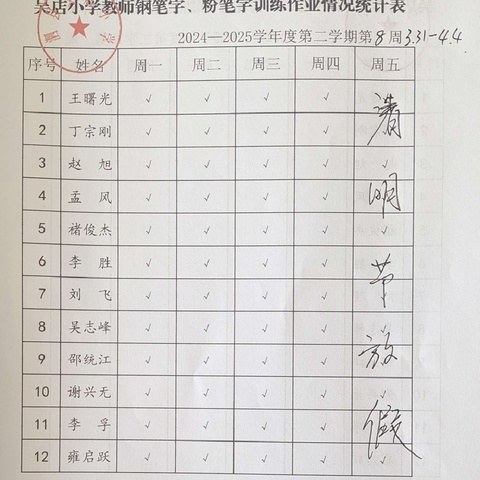 吴店小学教师钢笔字、粉笔字训练作业情况统计表
2024—2025学年度第二学期第8周3.31-4.4
序号 姓名 周一 周二 周三 周四 周五
1 王曙光 √ √ √ √ 清
2 丁宗刚 √ √ √ √
3 赵旭 √ √ √ √ √
4 孟风 √ √ √ √ 明
5 褚俊杰 √ √ √ √ √
6 李胜 √ √ √ √ 节
7 刘飞 √ √ √ √
8 吴志峰 √ √ √ √ √
9 邵统江 √ √ √ √ 放
10 谢兴无 √ √ √ √ √
11 李孚 √ √ √ √ 假
12 雍启跃 √ √ √ √ √